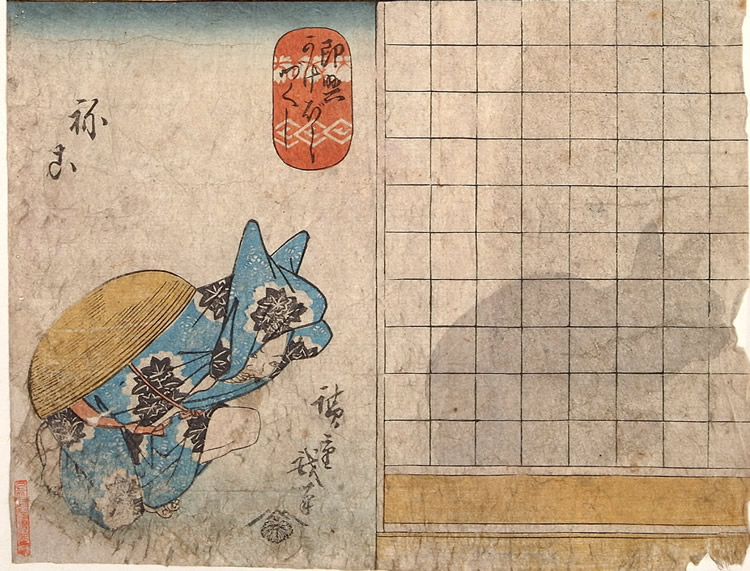 即興
かげぼし
づくし
祢こ
廣重
戯筆